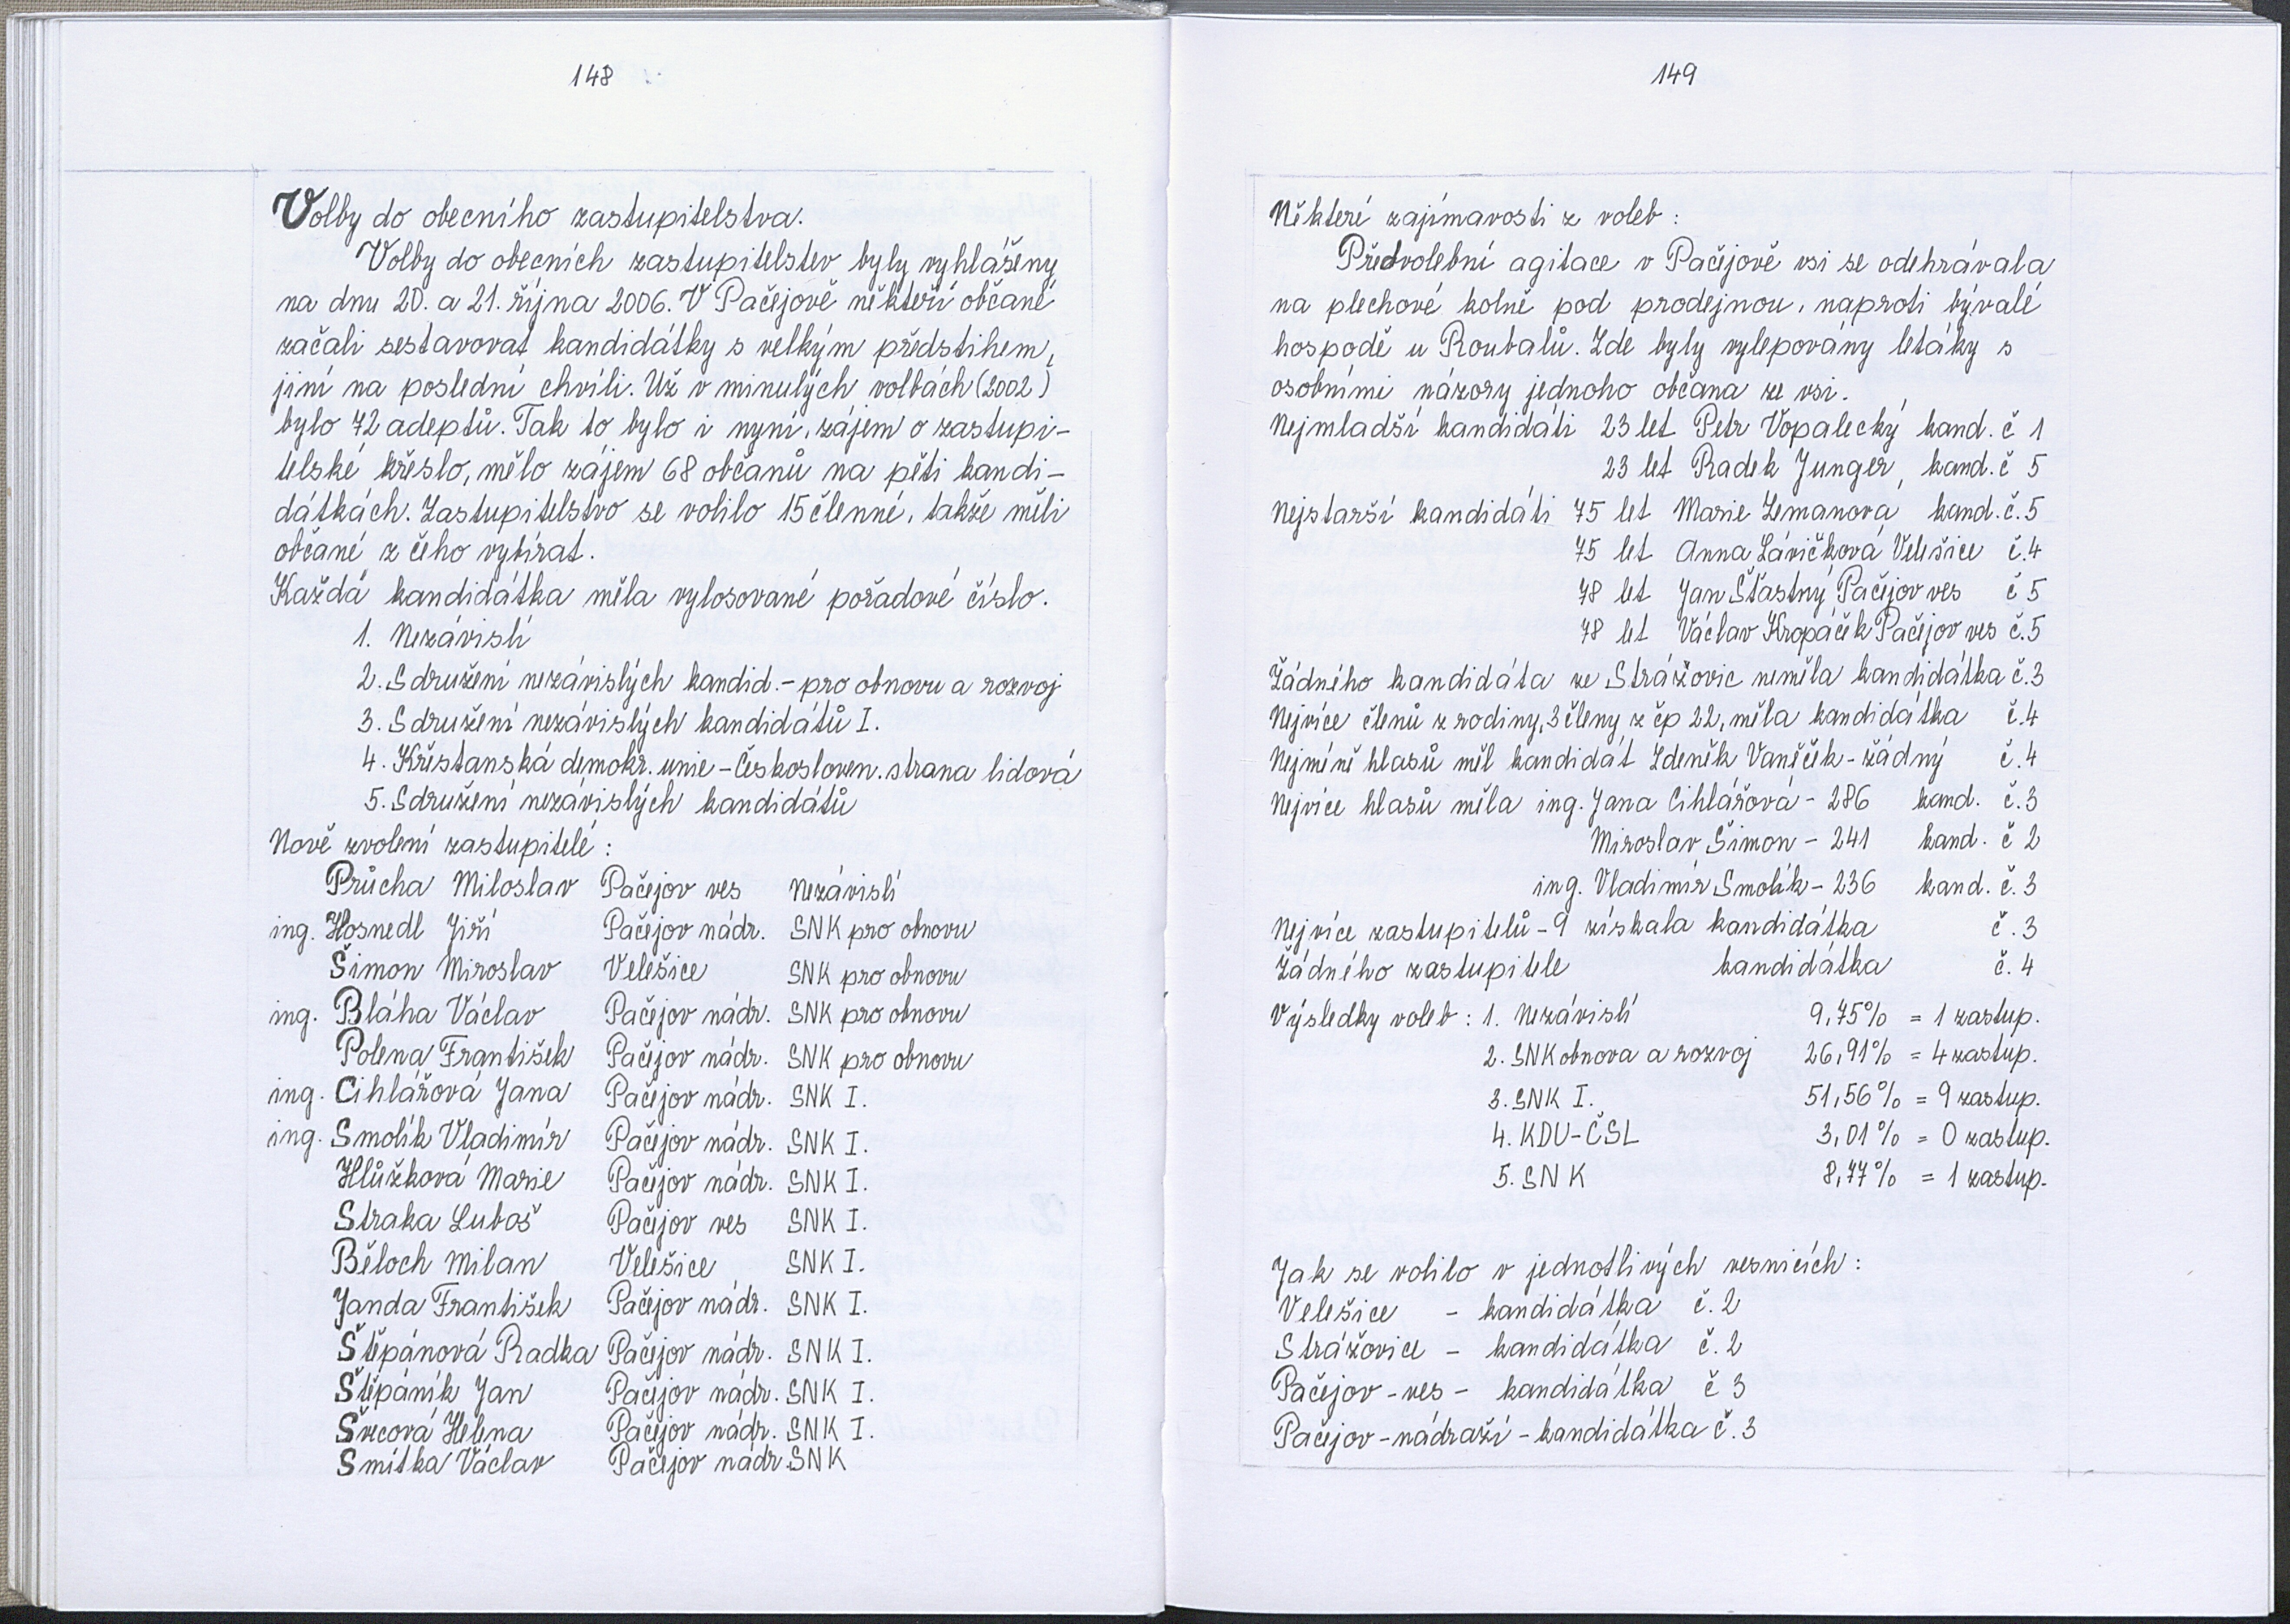 148
Volby do obecního zastupitelstva.
Volby do obecních zastupitelstev byly vyhlášeny
na dnu 20. a 21. října 2006. V Pačejově někteří občané
začali sestavovat kandidátky s velkým předstihem,
jiní na poslední chvíli. Už v minulých volbách (2002)
bylo 72 adeptů. Tak to bylo i nyní, zájem o zastupi-
telské křeslo, mělo zájem 68 občanů na pěti kandi-
dátkách. Zastupitelstvo se volilo 15 členné, takže měli
občané z čeho vybírat.
Každá kandidátka měla vylosované pořadové číslo.
1. Nezávislí
2. Sdružení nezávislých kandid. - pro obnovu a rozvoj
3. Sdružení nezávislých kandidátů I.
4. Křestanská demokr. unie - Českosloven. strana lidová
5. Sdružení nezávislých kandidátů
Nově zvolení zastupitelé :
Průcha Miloslav Pačejov ves Nezávislí
ing. Hosnedl Jiří Pačejov nádr. SNK pro obnovu
Šimon Miroslav Velešice SNK pro obnovu
ing. Bláha Václav Pačejov nádr. SNK pro obnovu
Polena František Pačejov nádr. SNK pro obnovu
ing. Cihlářová Jana Pačejov nádr. SNK I.
ing. Smolík Vladimír Pačejov nádr. SNK I.
Hlůžková Marie Pačejov nádr. SNK I.
Straka Luboš Pačejov ves SNK I.
Běloch Milan Velešice SNK I.
Janda František Pačejov nádr. SNK I.
Štěpánová Radka Pačejov nádr. SNK I.
Štěpáník Jan Pačejov nádr. SNK I.
Švecová Helena Pačejov nádr. SNK I.
Smitka Václav Pačejov nádr SNK
149
Někteří zajímavosti z voleb :
Předvolební agitace v Pačejově vsi se odehrávala
na plechové kolně pod prodejnou, naproti bývalé
hospodě u Roubalů. Zde byly vylepovány letáky s
osobními názory jednoho občana ze vsi.
Nejmladší kandidáti 23 let Petr Vopalecký kand. č 1
23 let Radek Junger, kand. č 5
Nejstarší kandidáti 75 let Marie Zemanová kand. č. 5
75 let Anna Lávičková Velešice č. 4
78 let Jan Šťastný Pačejov ves č 5
78 let Václav Kropáček Pačejov ves č. 5
Žádného kandidáta ze Strážovic neměla kandidátka č. 3
Nejvíce členů z rodiny, 3 členy z čp 22, měla kandidátka č. 4
Nejméně hlasů měl kandidát Zdeněk Vaněček - žádný č. 4
Nejvíce hlasů měla ing. Jana Cihlářová - 286 kand. č. 3
Miroslav Šimon - 241 kand. č 2
ing. Vladimír Smolík - 236 kand. č. 3
Nejvíce zastupitelů - 9 získala kandidátka č. 3
Žádného zastupitele kandidátka č. 4
Výsledky voleb : 1. Nezávislí 9,75% = 1 zastup.
2. SNK obnova a rozvoj 26,91% = 4 zastup.
3. SNK I. 51,56% = 9 zastup.
4. KDU-ČSL 3,01% = 0 zastup.
5. SNK 8,77% = 1 zastup.
Jak se volilo v jednotlivých vesnicích :
Velešice - kandidátka č. 2
Strážovice - kandidátka č. 2
Pačejov - ves - kandidátka č 3
Pačejov - nádraží - kandidátka č. 3